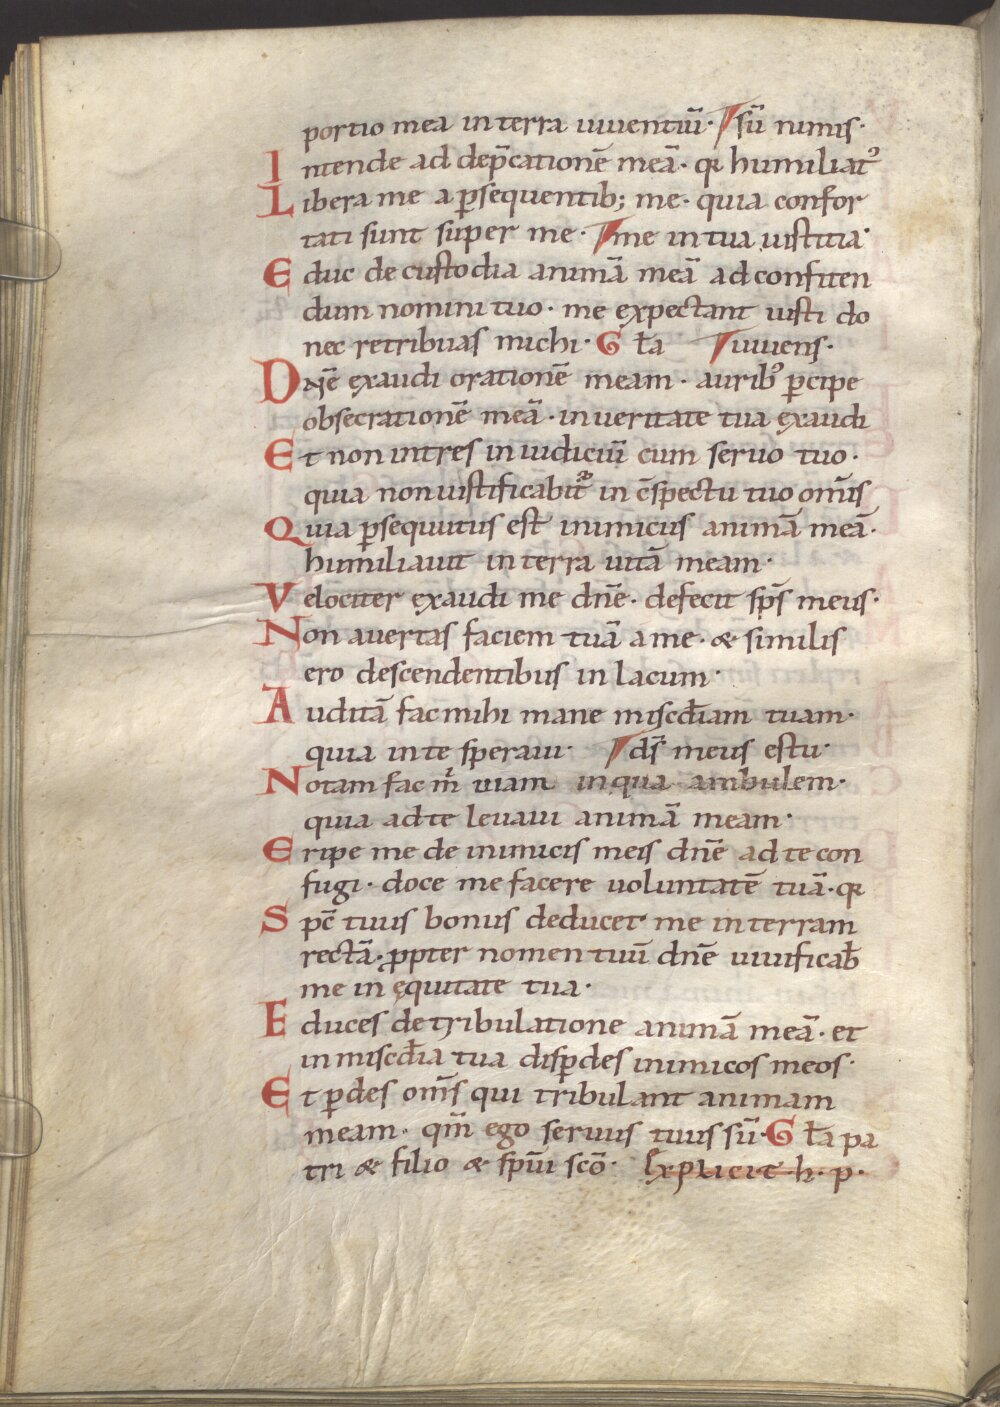 portio mea in terra uiuentiū· sū nimis·
Intende ad dep̄cationē meā· qr humiliatꝰ
Libera me a ꝑsequentib; me· quia confor
tati sunt super me· me in tua iustitia·
Educ de custodia animā meā ad confiten
dum nomini tuo· me expectant iusti do
nec retribuas michi· Gła uiuens·
Dn̄e exaudi orationē meam· auribꝰ ꝑcipe
obsecrationē meā· in ueritate tua exaudi
Et non intres in iudiciū cum seruo tuo·
quia non iustificabit᷑ in c̄spectu tuo om̄is
Quia ꝑsequutus est inimicus animā meā·
humiliauit in terra uitā meam·
Velociter exaudi me dn̄e· defecit sp̄s meus·
Non auertas faciem tuā a me· & similis
ero descendentibus in lacum·
Auditā fac mihi mane misc̄diam tuam·
quia in te speraui· ds̄ meus es tu·
Notam fac m̄ uiam in qua ambulem·
quia ad te leuaui animā meam·
Eripe me de inimicis meis dn̄e ad te con
fugi· doce me facere uoluntatē tuā· qr
Spc̄ tuus bonus deducet me in terram
rectā· ꝓpter nomen tuū dn̄e uiuificab̄
me in ęquitate tua·
Educes de tribulatione animā meā· et
in misc̄dia tua disꝑdes inimicos meos·
Et ꝑdes om̄s qui tribulant animam
meam· qm̄ ego seruus tuus sū· Gła pa
tri & filio & sp̄ui scō· Explicit· h· p·